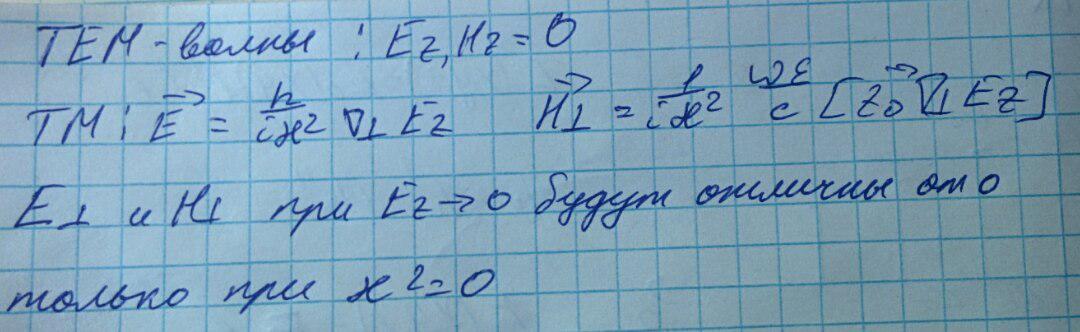 TEM-волны : Ez, Hz = 0
TM: E⃗ = h/(iϰ²) ∇⊥ Ez   H⃗⊥ = 1/(iϰ²) ωε/c [z⃗₀ ∇⊥ Ez]
E⊥ и H⊥ при Ez → 0 будут отличны от 0
только при ϰ² = 0